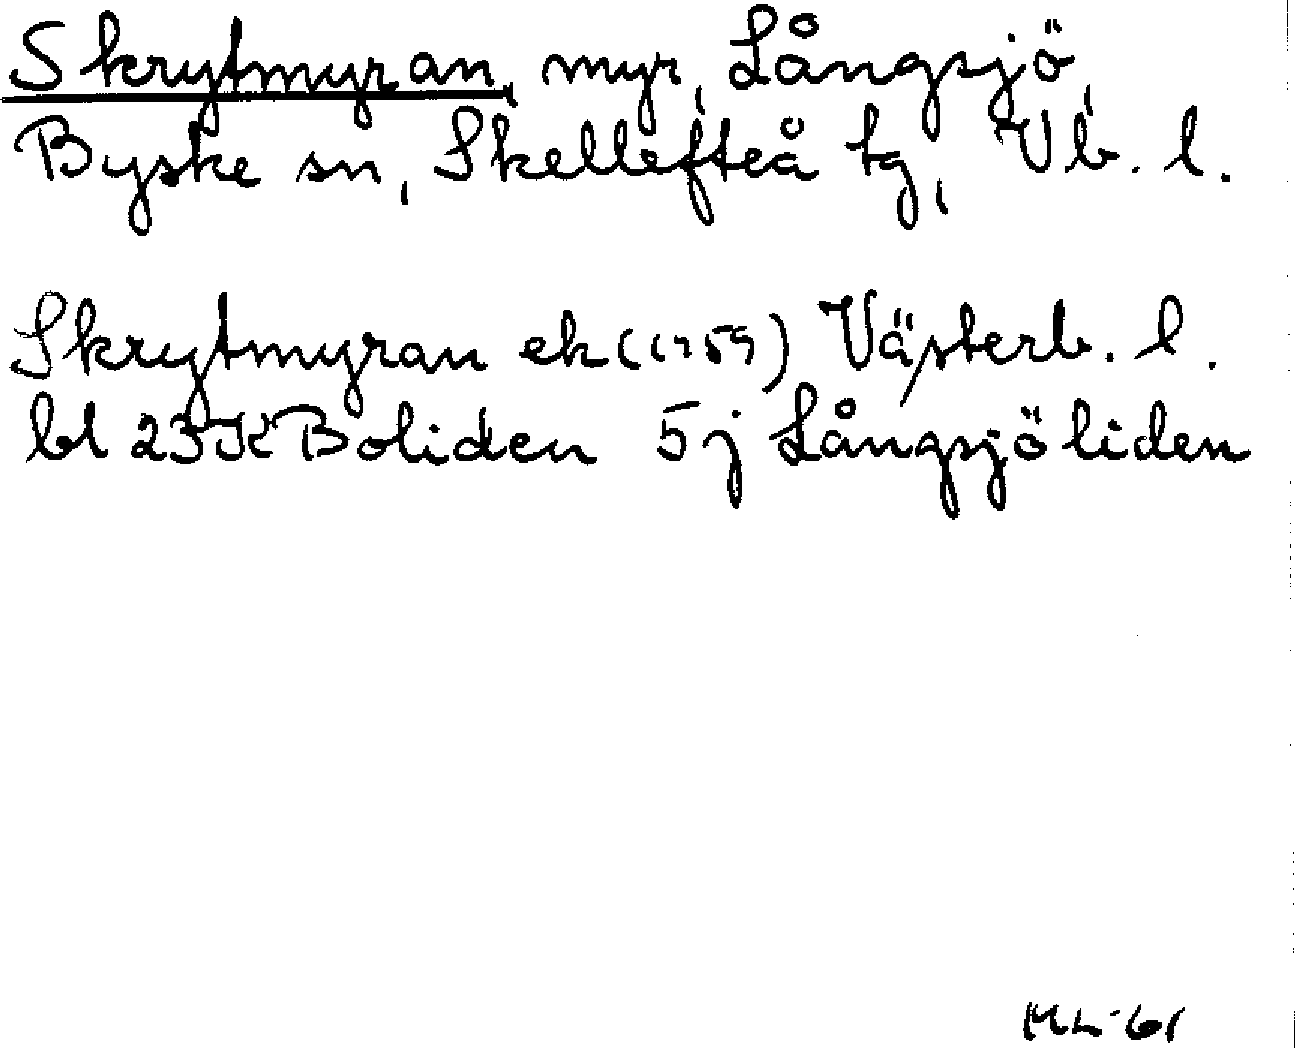 Skrytmyran, myr, Långsjö,
Byske sn, Skellefteå tg, Vb. l.
Skrytmyran ek (1959) Västerb. l.
bl 23K Boliden 5j Långsjöliden
ML-61